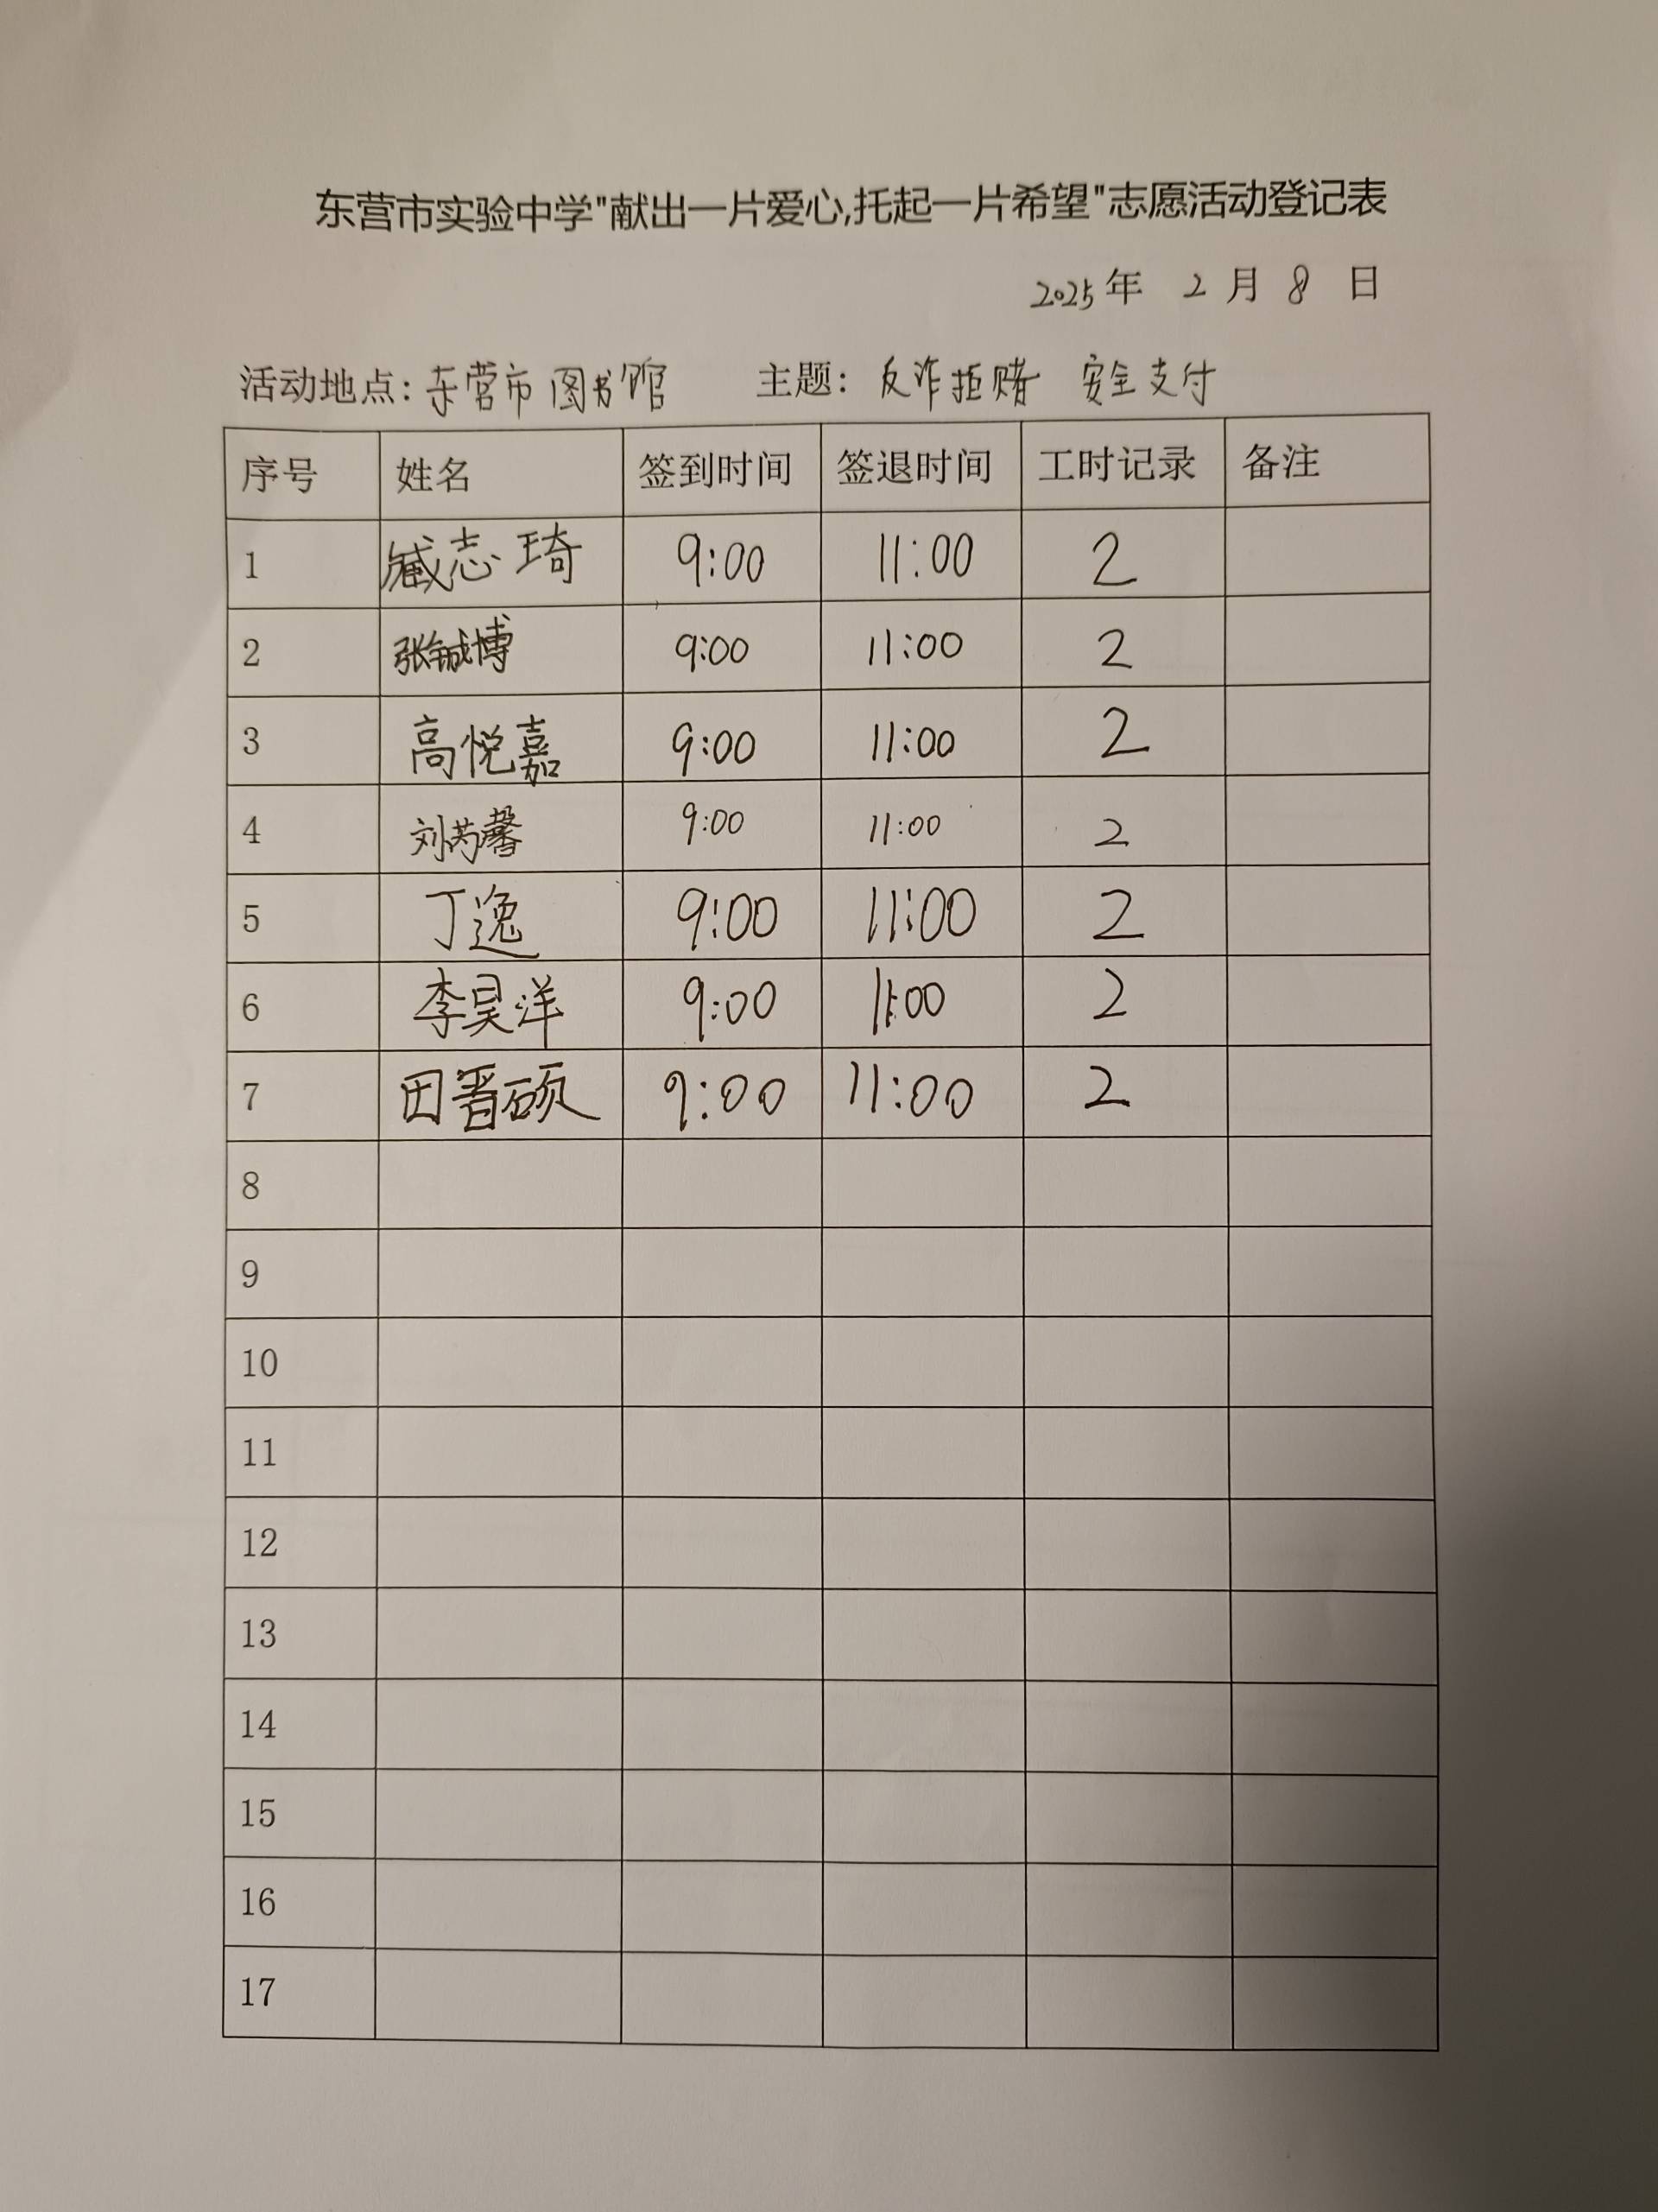 东营市实验中学"献出一片爱心,托起一片希望"志愿活动登记表
2025年 2月 8日
活动地点:东营市图书馆 主题:反诈拒赌 安全支付
序号 姓名 签到时间 签退时间 工时记录 备注
1 臧志琦 9:00 11:00 2
2 张铖博 9:00 11:00 2
3 高悦嘉 9:00 11:00 2
4 刘芮馨 9:00 11:00 2
5 丁逸 9:00 11:00 2
6 李昊洋 9:00 11:00 2
7 田晋硕 9:00 11:00 2
8
9
10
11
12
13
14
15
16
17